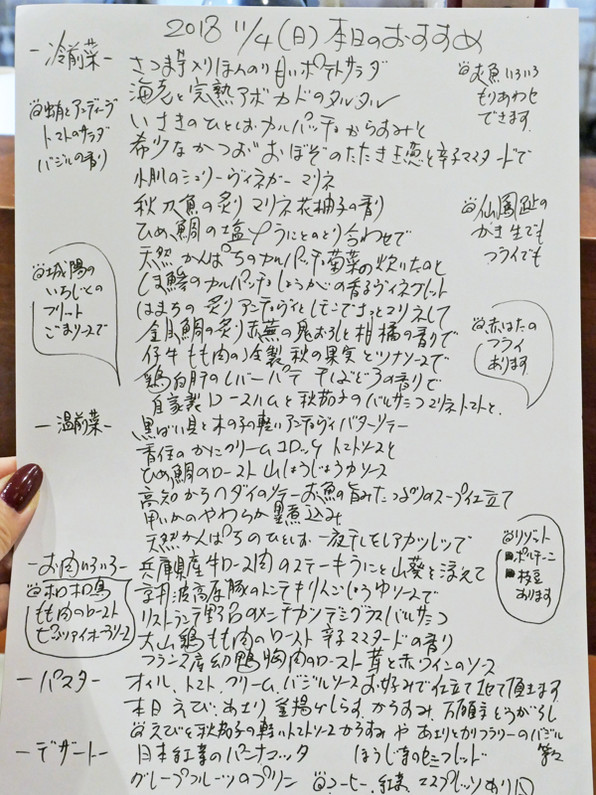 2018 11/4(日) 本日のおすすめ
-冷前菜-
さつま芋入りほんのり甘いポテトサラダ
海老と完熟アボカドのタルタル
いさきのひとしおカルパッチョ からすみと
希少なかつお"おぼぞ"のたたき 玉葱と辛子マスタードで
小肌のシェリーヴィネガーマリネ
秋刀魚の炙りマリネ 花柚子の香り
ひめ鯛の塩〆 うにとのとり合わせで
天然かんぱちのカルパッチョ 菊菜の炊いたのと
しま鯵のカルパッチョ しょうがの香るヴィネグレット
はまちの炙り アンディーヴとしてこでさっとマリネして
金目鯛の炙り 赤蕪の鬼おろしと柑橘の香りで
仔牛もも肉の冷製 秋の果実とツナソースで
鶏白肝のレバーパテ 干しぶどうの香りで
自家製ロースハムと秋茄子のバルサミコマリネ トマトと
蛸とアンディーヴ
トマトのサラダ
バジルの香り
お魚いろいろ
もりあわせ
できます
仙鳳趾の
かき 生でも
フライでも
城陽の
いちじくの
フリット
ごまソースで
赤はたの
フライ
あります
-温前菜-
黒ばい貝と木の子の軽いアンチョヴィバターソテー
香住のかにクリームコロッケ トマトソースと
ひめ鯛のロースト 山しょうじょうゆソース
高知からヘダイのソテー お魚の旨みたっぷりのスープ仕立て
甲いかのやわらか墨煮込み
天然かんぱちのひとしお一夜干しをレアカツレツで
リゾット
ポルチーニ
枝豆
あります
-お肉いろいろ-
兵庫県産牛ロース肉のステーキ うにと山葵を添えて
京丹波高原豚のトンテキ りんごしょうゆソースで
リストランテ野呂のメンチカツ デミグラスバルサミコ
大山鶏もも肉のロースト 辛子マスタードの香り
フランス産幼鴨胸肉のロースト 茸と赤ワインのソース
ホロホロ鳥
もも肉のロースト
-パスタ-
オイル、トマト、クリーム、バジルソース お好みで仕立てさせて頂きます
本日 えび、あさり、釜揚げしらす、からすみ、万願寺とうがらし
えびと秋茄子の軽いトマトソース からすみや あさりとカリフラワーのバジル 等々
-デザート-
日本紅茶のパンナコッタ ほうじ茶のセミフレッド
グレープフルーツのプリン コーヒー、紅茶、エスプレッソあり〼